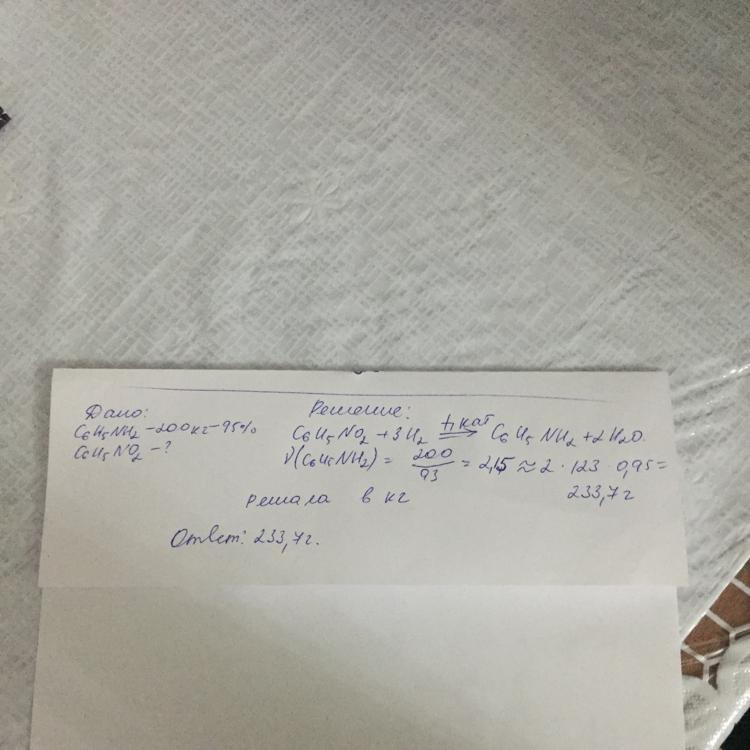 Дано:
C6H5NH2 – 200кг – 95%
C6H5NO2 – ?
Решение:
C6H5NO2 + 3H2 t, кат ⇒ C6H5NH2 + 2H2O.
ν(C6H5NH2) = 200/93 = 2,15 ≈ 2 · 123 · 0,95 =
233,7 г
решала в кг
Ответ: 233,7 г.